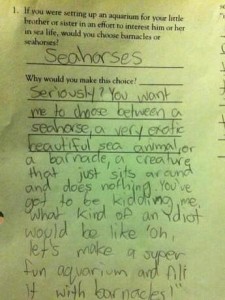 1. If you were setting up an aquarium for your little
brother or sister in an effort to interest him or her
in sea life, would you choose barnacles or
seahorses?
Seahorses
Why would you make this choice?
Seriously? You want
me to choose between a
seahorse, a very exotic
beautiful sea animal, or
a barnacle, a creature
that just sits around
and does nothing. You've
got to be kidding me,
what kind of an ydiot
would be like "oh,
let's make a super
fun aquarium and fill
it with barnacles!"